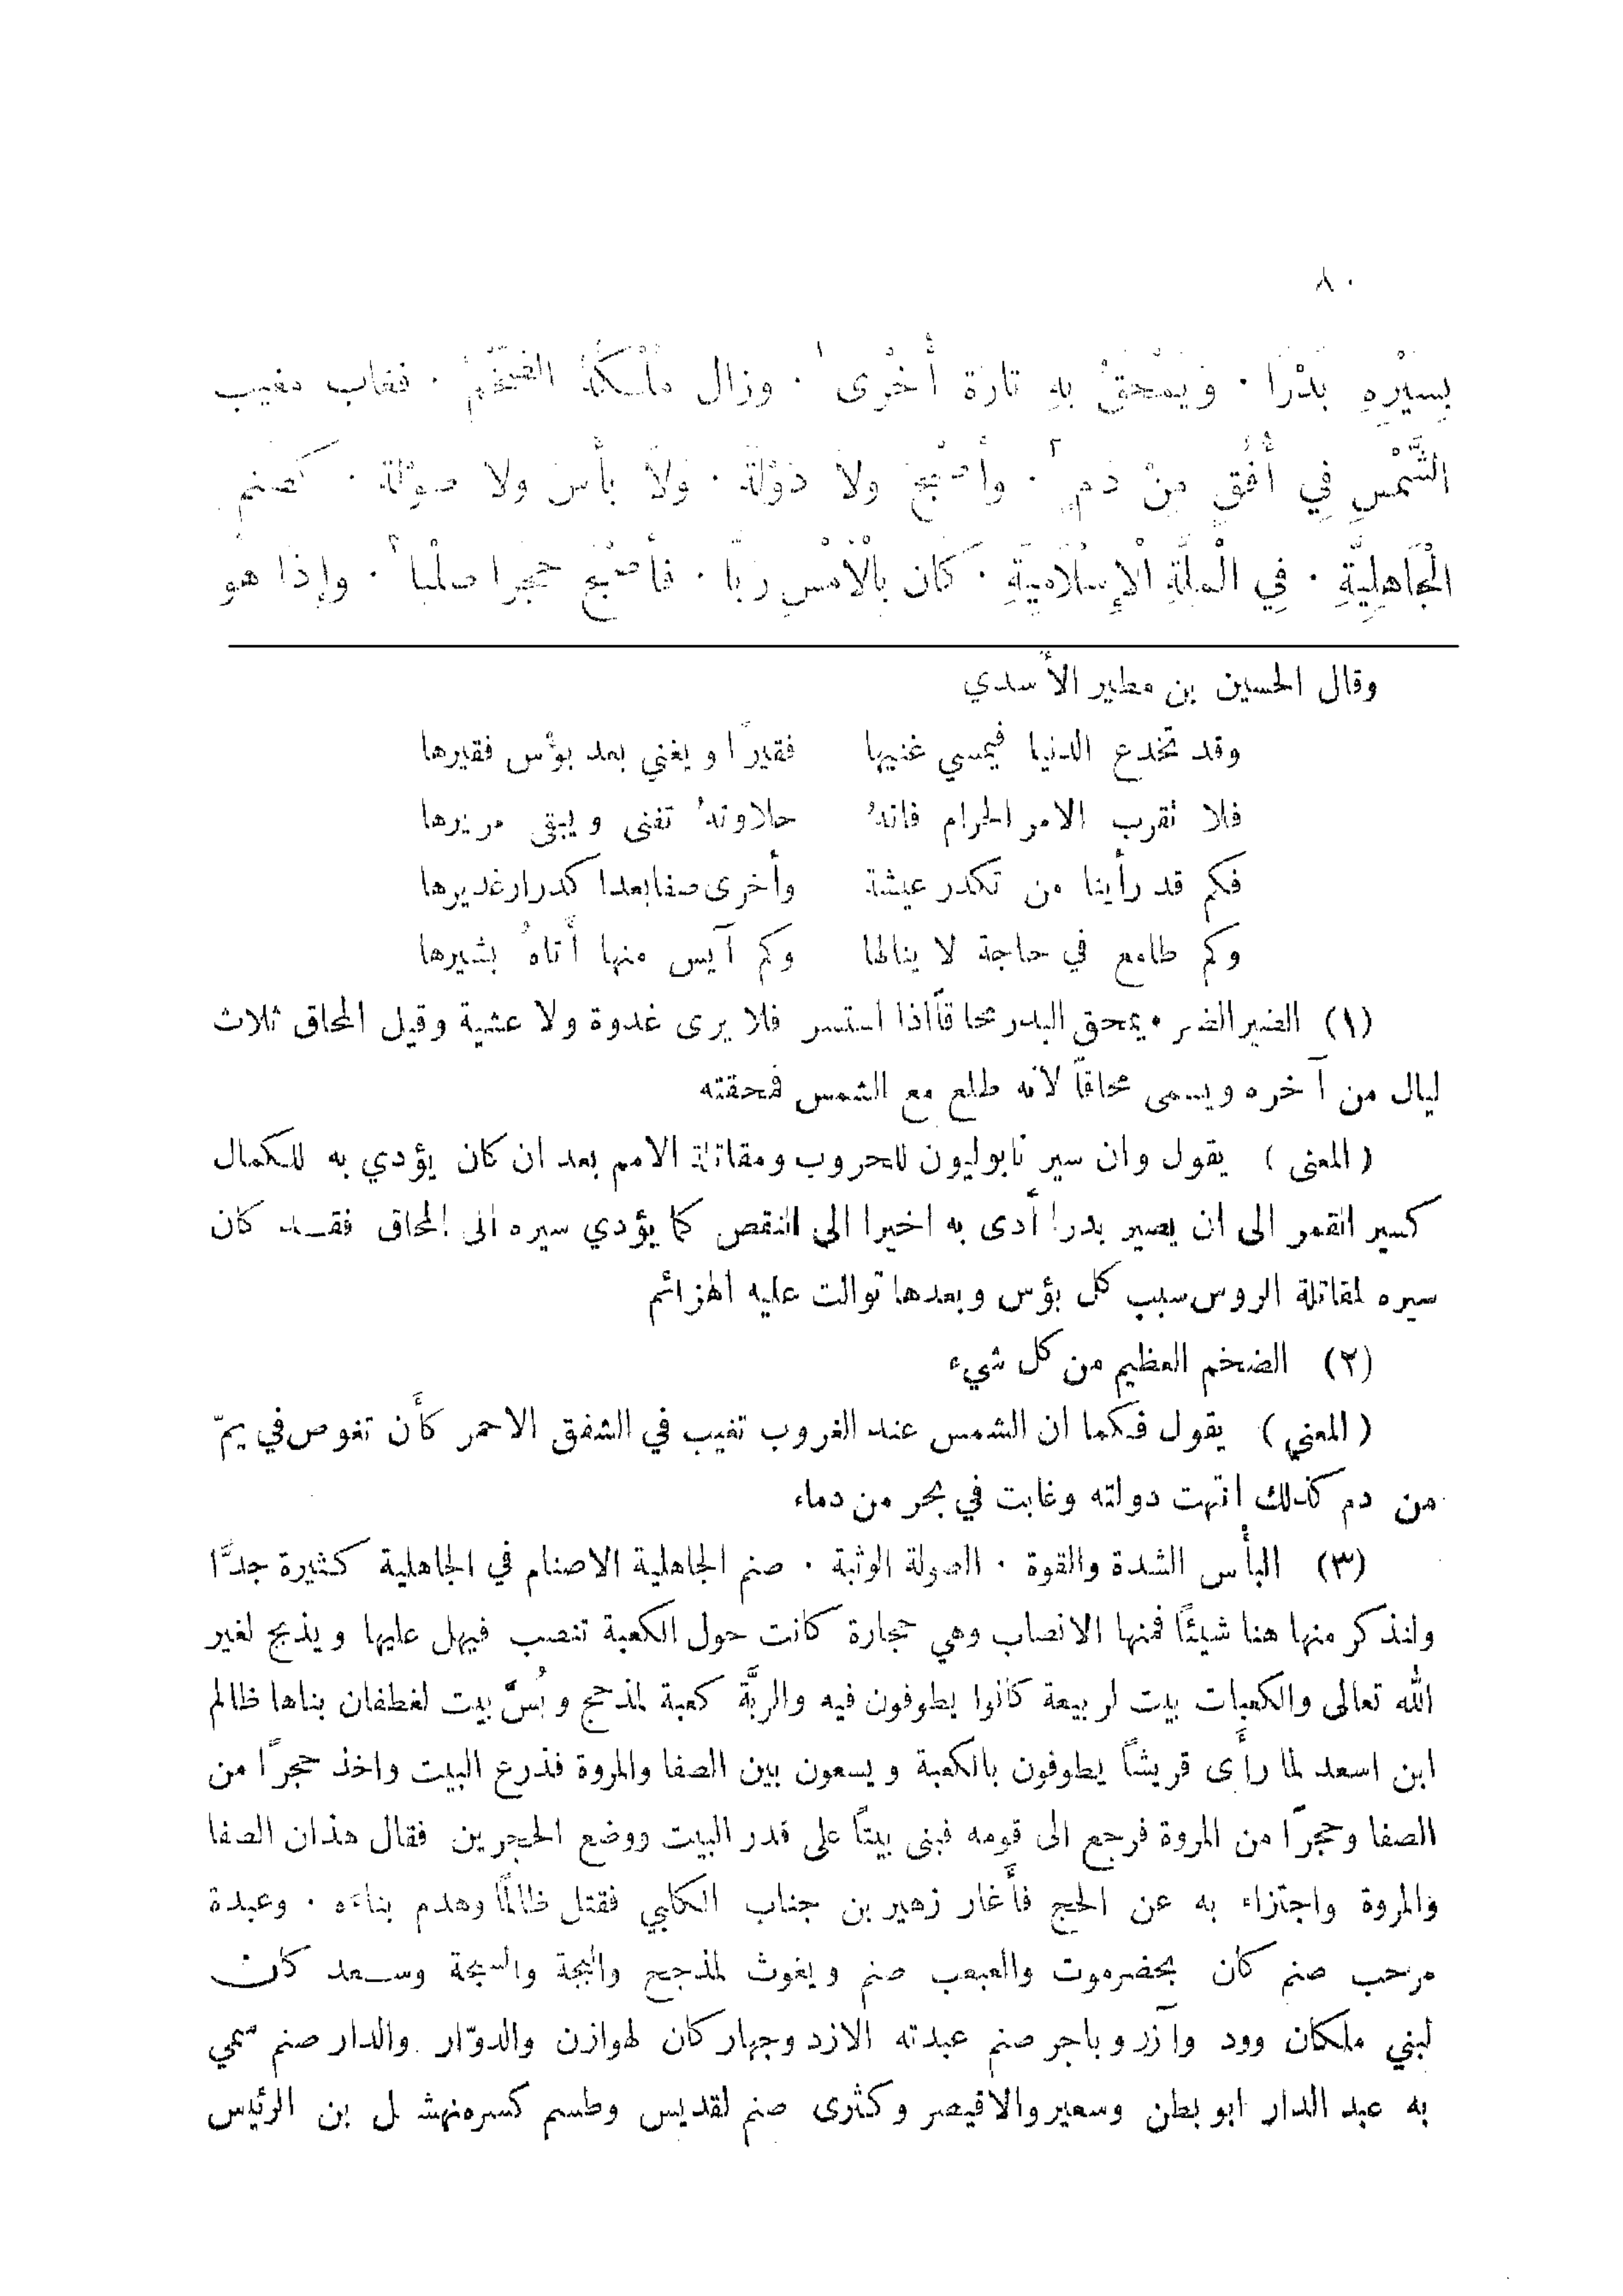 ٨٠
بِسَيْرِهِ بَدْرًا . وَيَمْحَقُ بِهِ تارة أُخْرَى ١ . وزال مُلْكُهُ الضَّخْمُ . فغاب مغيب
الشَّمْسِ فِي أُفُقٍ مِنْ دَمٍ ٢ . وأصبح ولاَ دَوْلَةَ . ولاَ بأس ولا صولة . كصنم
الْجَاهِلِيَّةِ . فِي الْمِلَّةِ الْإِسْلَامِيَّةِ . كان بِالْأَمْسِ رَبًّا . فأصبح حجرا صلبا ٣ . وإذا هو
وقال الحسين بن مطير الأسدي
وقد تخدع الدنيا فيمسي غنيها فقيرًا ويغني بعد بؤس فقيرها
فلا تقرب الامر الحرام فانهُ حلاوتهُ تفنى ويبقى مريرها
فكم قد رأينا من تكدر عيشة وأخرى صفا بعد اكدرار غديرها
وكم طامع في حاجة لا ينالها وكم آيس منها أتاهُ بشيرها
(١) الضير الضر . يمحق البدر محاقاً اذا استسر فلا يرى غدوة ولا عشية وقيل المحاق ثلاث
ليال من آخره ويسمى محاقاً لأنه طلع مع الشمس فمحقته
( المعنى ) يقول وان سير نابوليون للحروب ومقاتلة الامم بعد ان كان يؤدي به للكمال
كسير القمر الى ان يصير بدرا أدى به اخيرا الى النقص كما يؤدي سيره الى المحاق فقد كان
سيره لمقاتلة الروس سبب كل بؤس وبعدها توالت عليه الهزائم
(٢) الضخم العظيم من كل شيء
( المعنى ) يقول فكما ان الشمس عند الغروب تغيب في الشفق الاحمر كأن تغوص في يمّ
من دم كذلك انتهت دولته وغابت في بحر من دماء
(٣) البأس الشدة والقوة . الصولة الوثبة . صنم الجاهلية الاصنام في الجاهلية كثيرة جدًّا
ولنذكر منها هنا شيئًا فمنها الانصاب وهي حجارة كانت حول الكعبة تنصب فيهل عليها ويذبح لغير
الله تعالى والكعبات بيت لربيعة كانوا يطوفون فيه والربَّة كعبة لمذحج وبُسّ بيت لغطفان بناها ظالم
ابن اسعد لما رأى قريشاً يطوفون بالكعبة ويسعون بين الصفا والمروة فذرع البيت واخذ حجرًا من
الصفا وحجرًا من المروة فرجع الى قومه فبنى بيتاً على قدر البيت ووضع الحجرين فقال هذان الصفا
والمروة واجتزاء به عن الحج فأغار زهير بن جناب الكلبي فقتل ظالمًا وهدم بناءه . وعبدة
مرحب صنم كان بحضرموت والعبعب صنم ويغوث لمذحج والبجة والسجة وسعد كان
لبني ملكان وود وآزر وباجر صنم عبدته الازد وجهار كان لهوازن والدوّار والدار صنم سمي
به عبد الدار ابو بطن وسعير والاقيصر وكثرى صنم لقديس وطسم كسره نهشل بن الرئيس